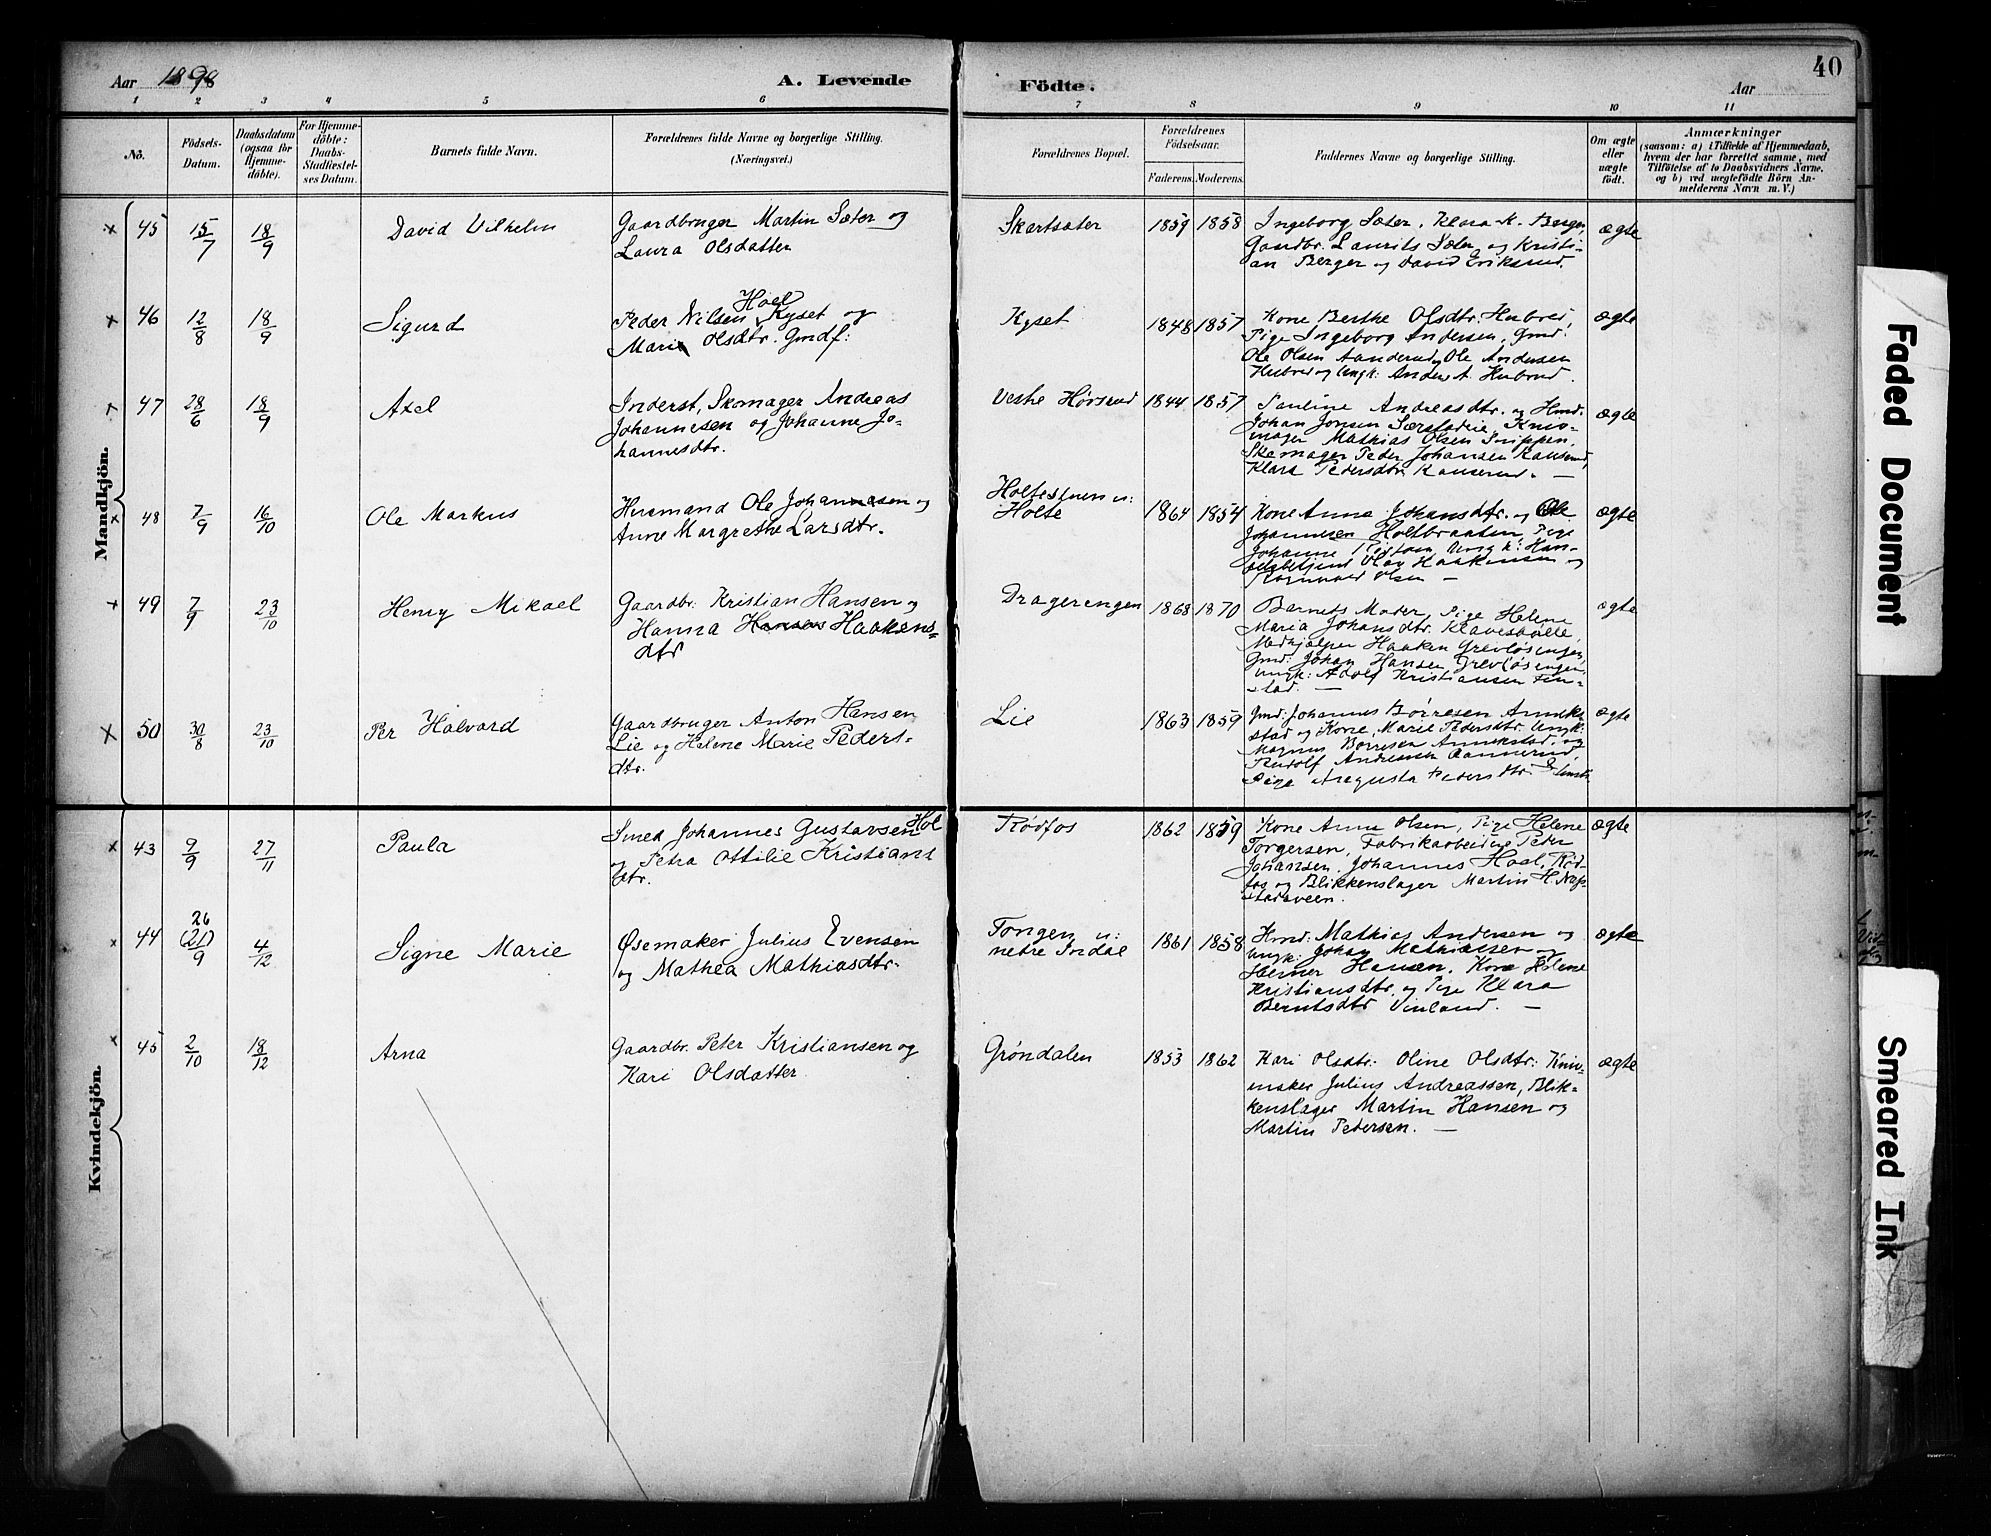 Aar 1898
A. Levende Födte.
Aar
40
1 2 3 4 5 6 7 8 9 10 11
No.
Födsels-
Datum.
Daabsdatum
(ogsaa for
Hjemme-
döbte).
For Hjemme-
döbte:
Daabs-
Stadfæstel-
ses Datum.
Barnets fulde Navn.
Forældrenes fulde Navne og borgerlige Stilling.
(Næringsvei.)
Forældrenes Bopæl.
Forældrenes
Födselsaar.
Faderens. Moderens.
Faddernes Navne og borgerlige Stilling.
Om ægte
eller
uægte
födt.
Anmærkninger
(saasom: a) i Tilfælde af Hjemmedaab,
hvem der har forrettet samme, med
Tilföielse af to Daabsvidners Navne.
og b) ved uægtefödte Börn An-
melderens Navn m. V.)
Mandkjön.
45 15/7 18/9 David Vilhelm
Gaardbruger Martin Sæter og
Laura Olsdatter
Skartsæter 1859 1858
Ingeborg Sæter, Klara K. Berger,
Gaardbr. Laurits Sæter og Kristi-
an Berger og David Eriksrud.
ægte
46 12/8 18/9 Sigurd
Hoel
Peder Nilsen Kyset og
Mari Olsdtr. Gmdf:
Kyset 1848 1857
Kone Berthe Olsdtr. Hubred,
Pige Ingeborg Andersen, Gmd:
Ole Olsen Aanderud, Ole Andersen
Hubred og Ungk: Anders A. Hubred.
ægte
47 28/6 18/9 Axel
Inderst, Skomager Andreas
Johannesen og Johanne Jo-
hannesdtr.
Vestre Hørsrud 1844 1857
Pauline Andreasdtr. og Hmd.
Johan Jonsen Særstadeie, Kniv-
mager Mathias Olsen Snippen,
Skomager Peder Johansen Kanserud,
Klara Pedersdtr. Kanserud. —
ægte
48 7/9 16/10 Ole Markus
Husmand Ole Johannesen og
Anne Margrethe Larsdtr.
Holtestuen u:
Holte 1864 1854
Kone Anne Johansdtr. og Ole
Johannesen Holtbraaten, Pige
Johanne
Olsen —
ægte
49 7/9 23/10 Henry Mikael
Gaardbr. Kristian Hansen og
Hanna Hansen Haakens-
dtr
Dragerengen 1868 1870
Barnets Moder, Pige Helene
Maria Johansdtr. Klavesbølle,
Medhjælper Haaken Grevløsengen,
Gmd: Johan Hansen Grevløsengen,
Ungk: Adolf Kristiansen Fin-
stad. —
ægte
50 30/8 23/10 Per Halvard
Gaardbruger Anton Hansen
Lie og Helene Marie Peders-
dtr.
Lie 1863 1859
Gmd: Johannes Børresen Annek-
stad og Kone, Marie Pedersdtr. Ungk:
Magnus Børresen Annekstad, og
Rudolf Andresen
Pige Augusta Pedersdtr.
ægte
Kvindekjön.
43 9/9 27/11 Paula
Smed Johannes Gustavsen Hol
og Petra Ottilie Kristians
dtr.
Rødfos 1862 1859
Kone Anne Olsen, Pige Helene
Torgersen, Fabrikarbeidere Peter
Johansen, Johannes Hoel, Rød-
fos og Blikkenslager Martin H. Nøp-
stadsveen.
ægte
44 26 (21)/9 4/12 Signe Marie
Øsemaker Julius Evensen
og Mathea Mathiasdtr.
Tongen u:
nedre Indal 1861 1858
Hmd: Mathias Andersen og
Ungk: Johan Mathiassen og
Hansen, Kone Helene
Kristiansdtr. og Pige Klara
Berntsdtr Vinland. —
ægte
45 2/10 18/12 Arna
Gaardbr. Peter Kristiansen og
Kari Olsdatter
Grøndalen 1853 1862
Kari Olsdtr: Oline Olsdtr: Kniv-
maker Julius Andreassen, Blik-
kenslager Martin Hansen og
Martin Pedersen. —
ægte
Faded Document
Smeared Ink